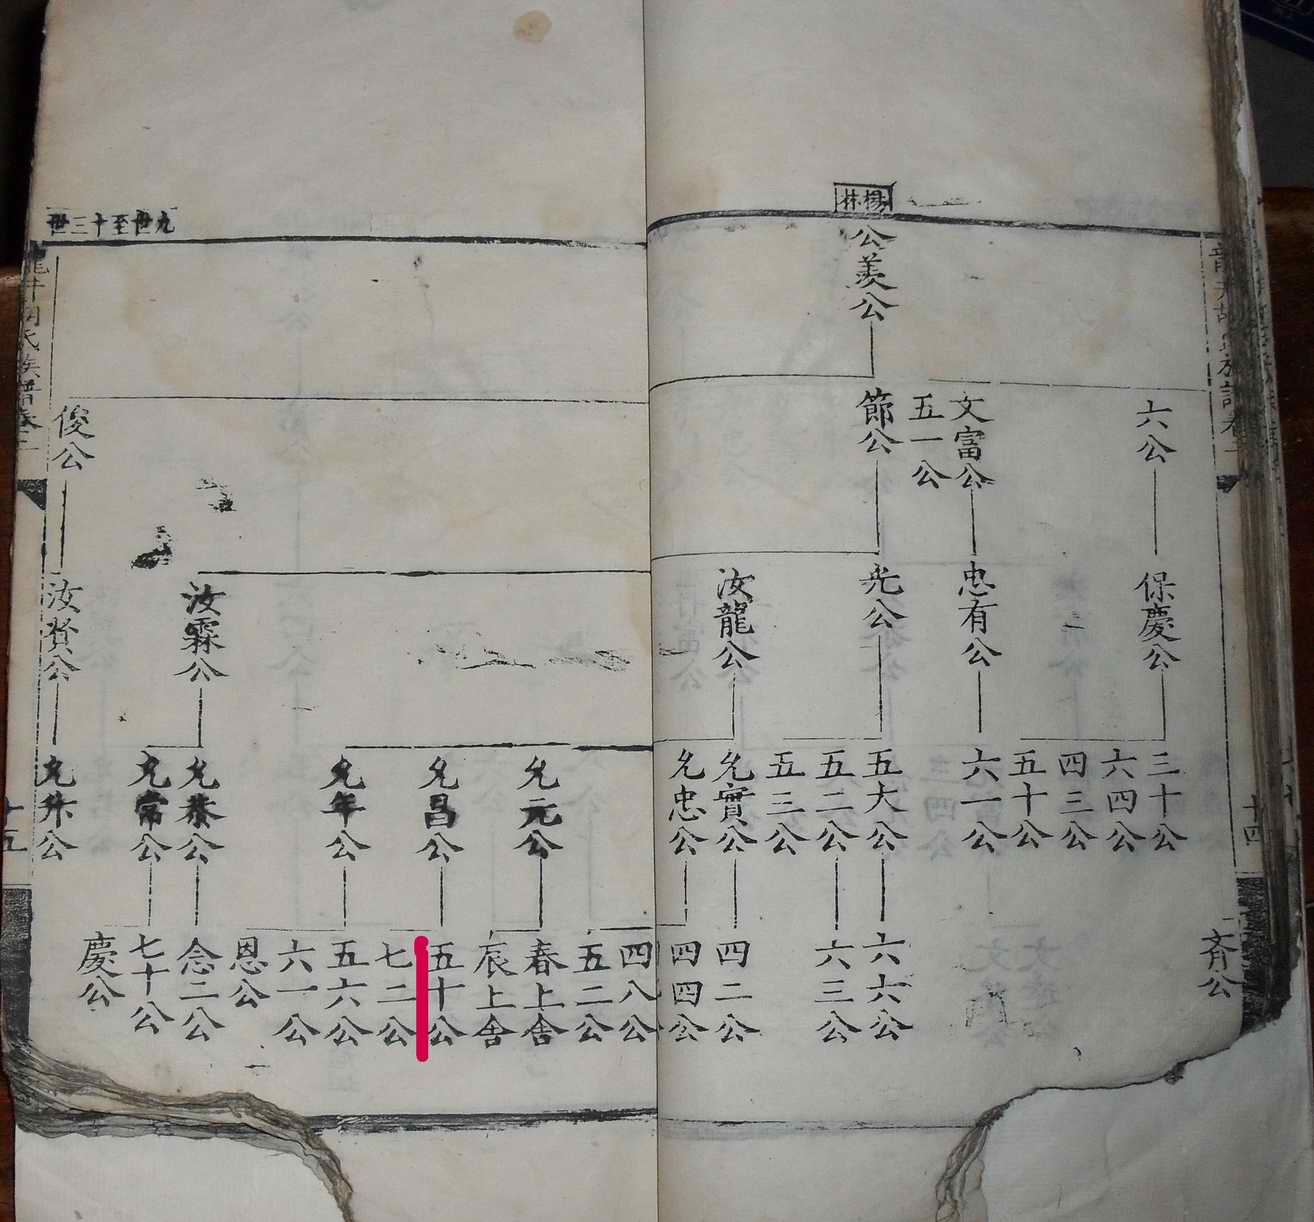 楊林
公羨公
六公
文富公
五一公
節公
保慶公
忠有公
光公
汝龍公
三十公
六四公
四三公
五十公
六一公
五大公
五二公
五三公
允實公
允忠公
斉公
六六公
六三公
四二公
四四公
九世至十三世
俊公
汝霖公
汝賢公
允元公
允昌公
允年公
允恭公
允常公
允升公
四八公
五二公
春上舍
辰上舍
五十公
七二公
五六公
六一公
恩公
念二公
七十公
慶公
十四
十五